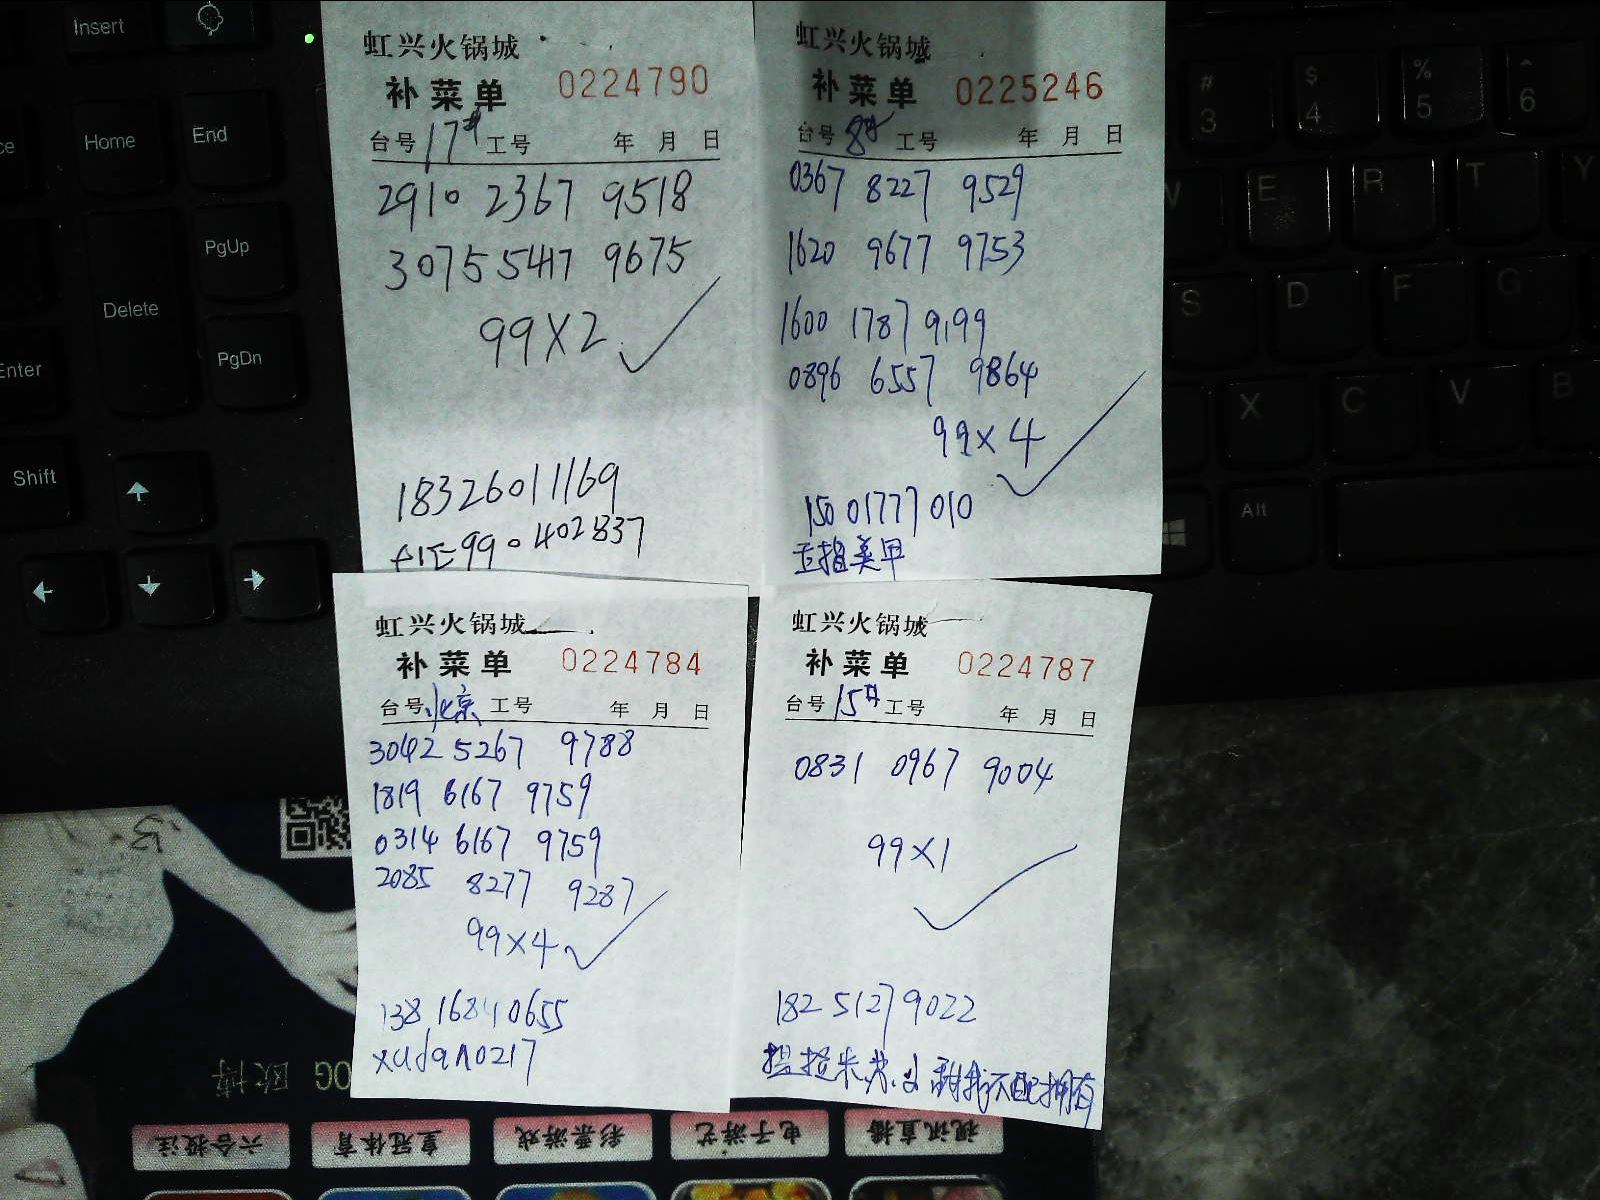 虹兴火锅城
补菜单 0224790
台号 17# 工号 年 月 日
2910 2367 9518
3075 5417 9675
99X2
18326011169
99。402837
虹兴火锅城
补菜单 0225246
台号 8# 工号 年 月 日
0367 8227 9529
1620 9677 9753
1600 1787 9199
0896 6557 9864
99X4
150 01777 010
指美甲
虹兴火锅城
补菜单 0224784
台号 北京 工号 年 月 日
3042 5267 9788
1819 6167 9759
0314 6167 9759
2085 8277 9287
99X4
138 16840655
xudan0217
虹兴火锅城
补菜单 0224787
台号 15# 工号 年 月 日
0831 0967 9004
99X1
182 5127 9022
我不配拥有
Insert
Home
End
PgUp
Delete
PgDn
Enter
Shift
# 3
$ 4
% 5
^ 6
E R T Y
S D F G
X C V B
Alt
OG 欧博
六合投注
皇冠体育
彩票游戏
电子游艺
视讯直播